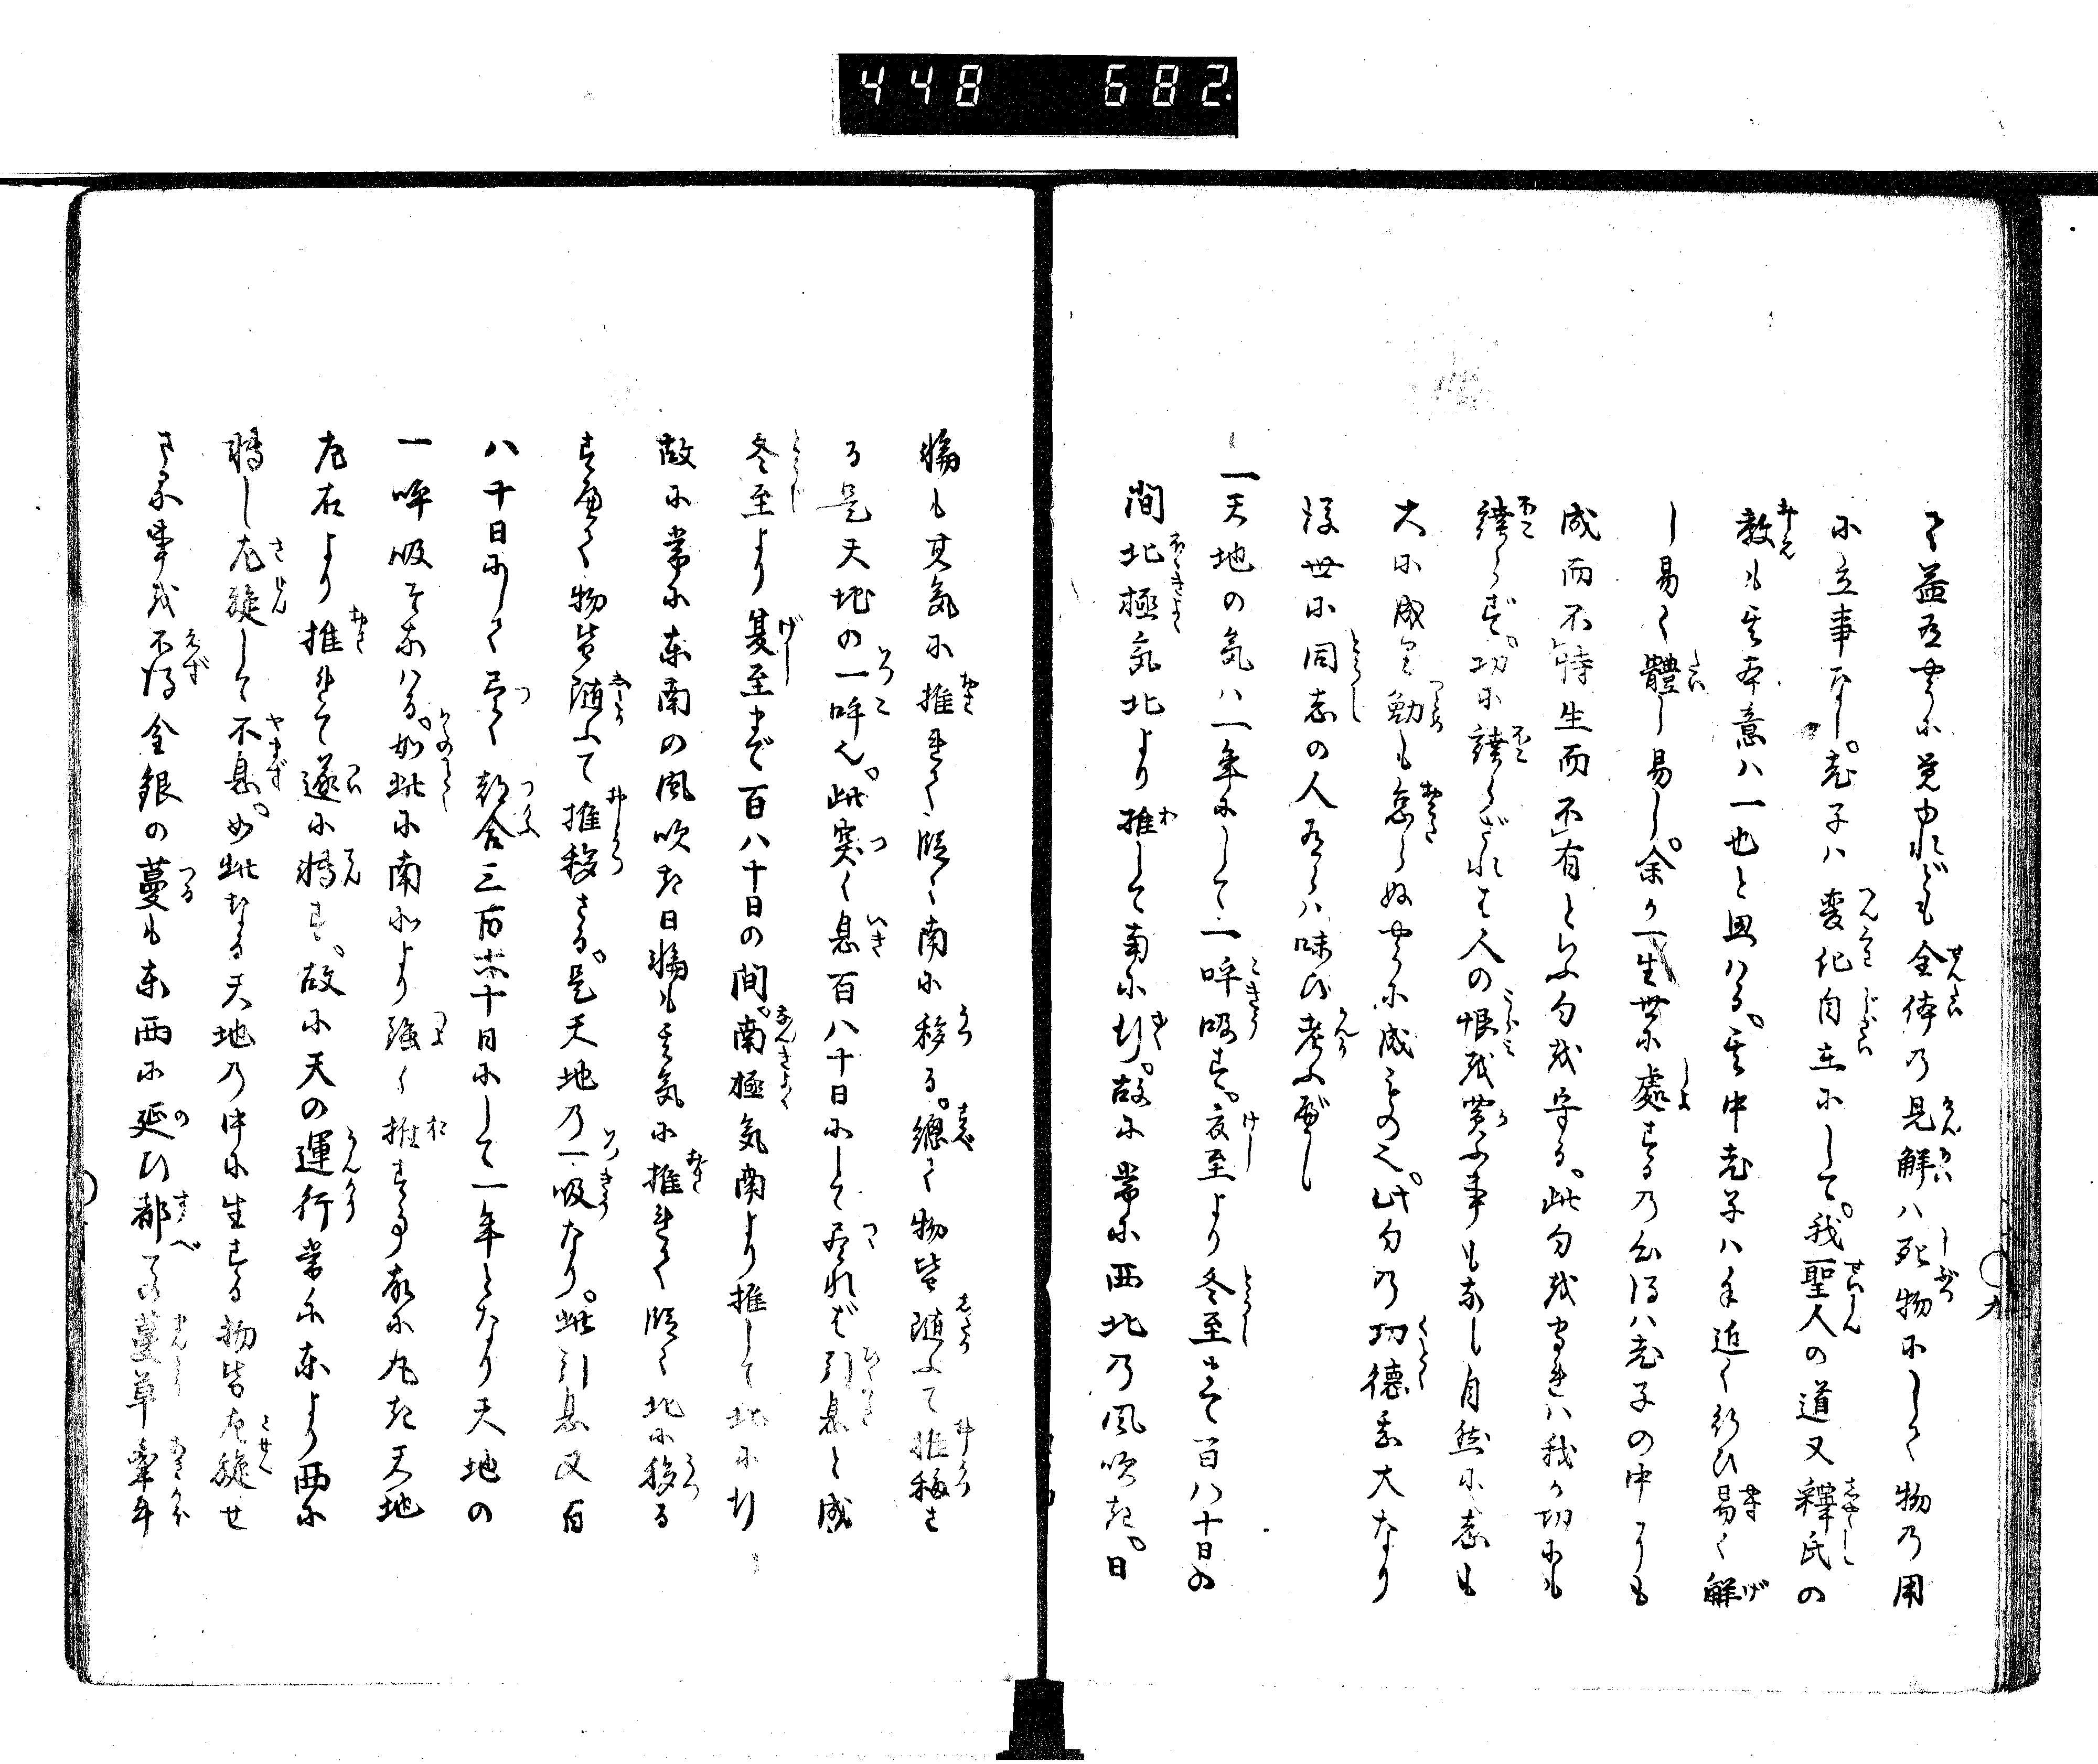 448 682
て益有やうに見ゆれども全体乃見解ハ死物にして物乃用
に立事なし。老子ハ変化自在にして。我聖人の道又釋氏の
教も其本意ハ一也と思ハる。其中老子ハ手近く行ひ易く解
し易く體し易し。余が一生世に處する乃心得ハ老子の中にも
成而不恃生而不有といふ句を守る。此句を守れハ我が功にも
誇らず。功に誇らざれバ人の恨を買ふ事もなし自然に志も
大に成て勤も怠らぬやうに成もの也。此句乃功徳甚大なり
後世に同志の人あらハ味ひ考ふべし
一天地の気ハ一年にして一呼吸す。夏至より冬至まで百八十日の
間北極気北より推して南に行。故に常に西北乃風吹き。日
輪も其気に推れて漸く南に移る。總て物皆随ふて推移さ
る是天地の一呼也。此突く息百八十日にして尽れば引息と成
冬至より夏至まで百八十日の間。南極気南より推して北に行
故に常に東南の風吹き日輪も其気に推れて漸く北に移る
すべて物皆随ふて推移さる。是天地乃一吸なり。此引息又百
八十日にして尽く都合三百六十日にして一年となり天地の
一呼吸そなハる。如此に南北より強く推する故に丸き天地
左右より推れて遂に轉す。故に天の運行常に東より西に
轉し左旋して不息。如此なる天地乃中に生する物皆左旋せ
さる事を不得金銀の蔓も東西に延ひ都ての蔓草牽牛